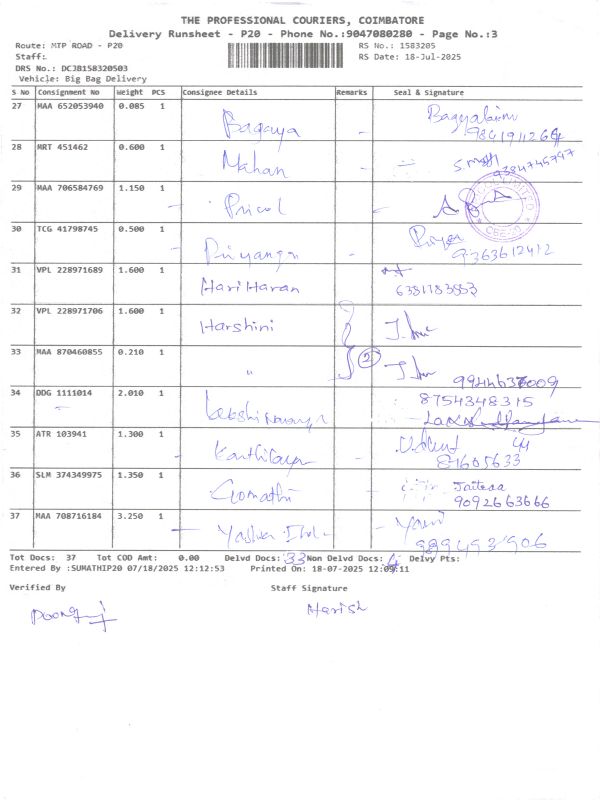 THE PROFESSIONAL COURIERS, COIMBATORE
Delivery Runsheet - P20 - Phone No.:9047080280 - Page No.:3
Route: MTP ROAD - P20 RS No.: 1583205
Staff: RS Date: 18-Jul-2025
DRS No.: DCJB158320503
Vehicle: Big Bag Delivery
S No Consignment No Weight PCS Consignee Details Remarks Seal & Signature
27 MAA 652053940 0.085 1 Bagaya -
28 MRT 451462 0.600 1 Mahan - 9384745797
29 MAA 706584769 1.150 1 Pricol -
30 TCG 41798745 0.500 1 Priyanga - Priya
9363612412
31 VPL 228971689 1.600 1 Hari Haran 6381183883
32 VPL 228971706 1.600 1 Harshini
33 MAA 870460855 0.210 1 " 2
9944637009
34 DDG 1111014 2.010 1 8754348315
35 ATR 103941 1.300 1
81605633
36 SLM 374349975 1.350 1 Gomathi
9092663666
37 MAA 708716184 3.250 1
9894931906
Tot Docs: 37 Tot COD Amt: 0.00 Delvd Docs: 33 Non Delvd Docs: 4 Delvy Pts:
Entered By :SUMATHIP20 07/18/2025 12:12:53 Printed On: 18-07-2025 12:09:11
Verified By Staff Signature
Harish